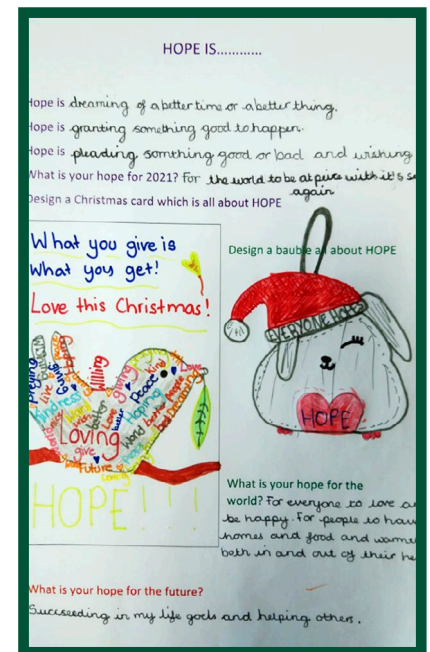 HOPE IS............
Hope is dreaming of a better time or a better thing.
Hope is granting something good to happen.
Hope is pleading somthing good or bad and wishing
What is your hope for 2021? For the world to be at piece with it's se
again
Design a Christmas card which is all about HOPE
What you give is
what you get!
Love this Christmas!
Loving
give
Future
giving
Peace
Hoping
kind
Love
World
better
people
HOPE!!!
Design a bauble all about HOPE
EVERYONE HOPES
HOPE
What is your hope for the
world? For everyone to love a
be happy. For people to hav
homes and food and warm
both in and out of their he
What is your hope for the future?
Succeeding in my life goels and helping others.